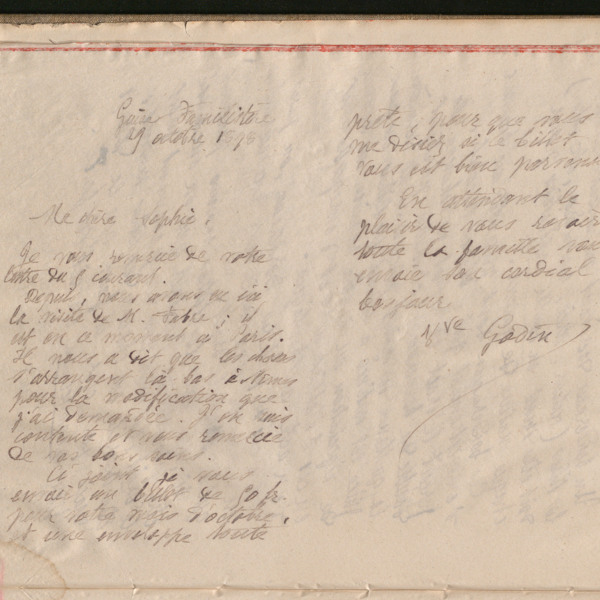 Guise Familistère
29 octobre 1898
Ma chère Sophie,
Je vous remercie de votre
lettre du 8 courant.
Depuis, nous avons eu ici
la visite de M. Fabre ; il
est en ce moment à Paris.
Il nous a dit que les choses
s'arrangent là bas
pour la modification que
j'ai demandée. J'en suis
contente et vous remercie
de vos bons soins.
Ci joint je vous
envoie un billet de 50 fr.
pour votre mois d'octobre,
et une enveloppe toute
prête, pour que vous
me disiez si le billet
vous est bien parvenu
En attendant le
plaisir de vous revoir
toute la famille vous
envoie son cordial
bonjour
Vve Godin